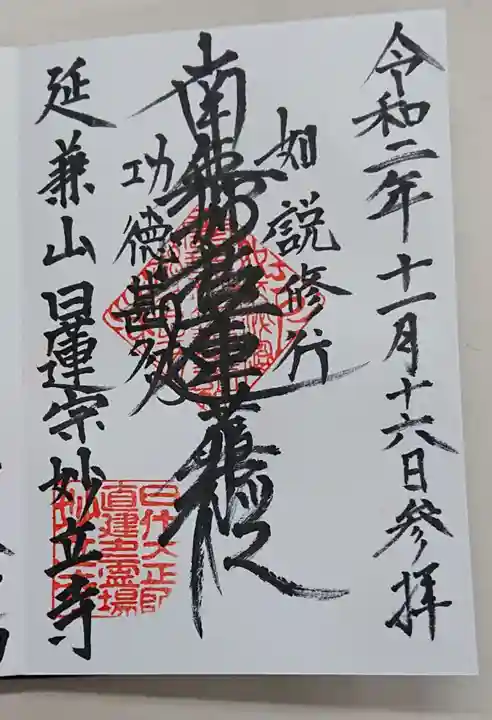 令和二年十一月十六日参拝
如説修行
南無妙法蓮華経
功徳甚多
延兼山日蓮宗妙立寺
直建立霊場
妙立寺